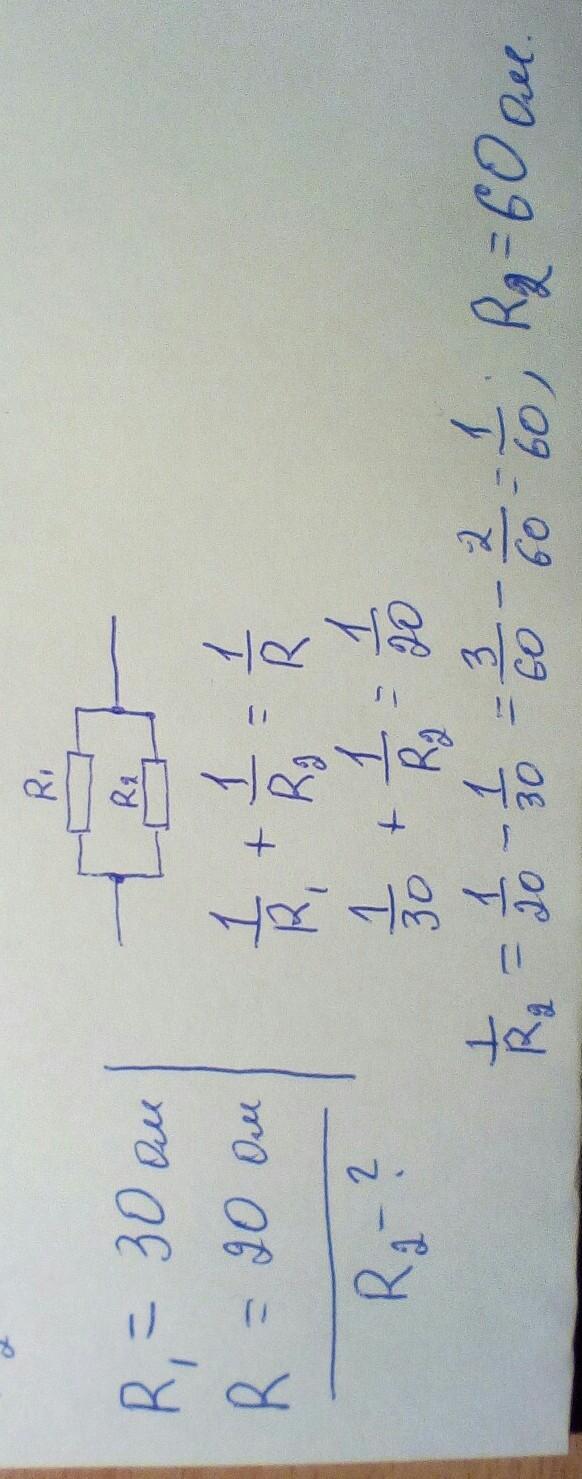 R₁ = 30 ом
R = 20 ом
R₂ - ?
R₁
R₂
1/R₁ + 1/R₂ = 1/R
1/30 + 1/R₂ = 1/20
1/R₂ = 1/20 - 1/30 = 3/60 - 2/60 = 1/60, R₂ = 60 ом.